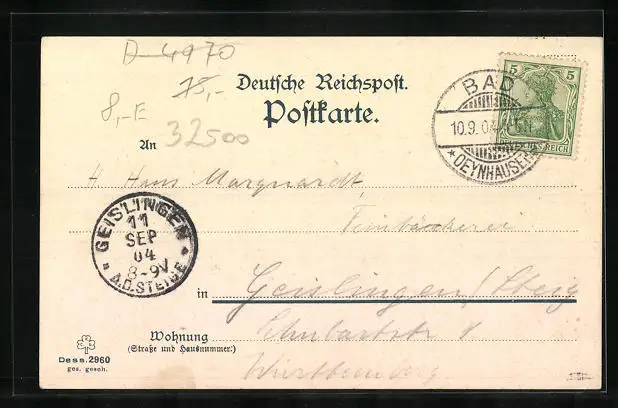 D-4970
75,-
8,-E
32500
Deutsche Reichspost.
Postkarte.
5 5
DEUTSCHES REICH
BAD
10.9.04
* OEYNHAUSEN
An
H Hans Marquardt,
Feinbäckerei
GEISLINGEN
11
SEP
04
8-9V
A.D. STEIGE
in Geislingen/Steig
Schubartstr 8
Württemberg
Wohnung
(Straße und Hausnummer:)
Dess. 2960
ges. gesch.